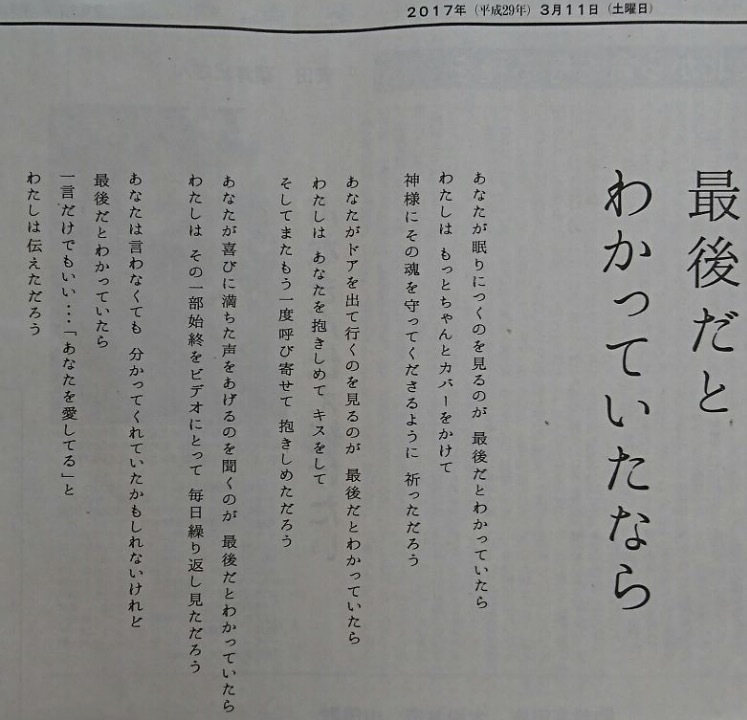 2017年（平成29年）3月11日（土曜日）
最後だと
わかっていたなら
あなたが眠りにつくのを見るのが 最後だとわかっていたら
わたしは もっとちゃんとカバーをかけて
神様にその魂を守ってくださるように 祈っただろう
あなたがドアを出て行くのを見るのが 最後だとわかっていたら
わたしは あなたを抱きしめて キスをして
そしてまたもう一度呼び寄せて 抱きしめただろう
あなたが喜びに満ちた声をあげるのを聞くのが 最後だとわかっていたら
わたしは その一部始終をビデオにとって 毎日繰り返し見ただろう
あなたは言わなくても 分かってくれていたかもしれないけれど
最後だとわかっていたら
一言だけでもいい・・・「あなたを愛してる」と
わたしは伝えただろう